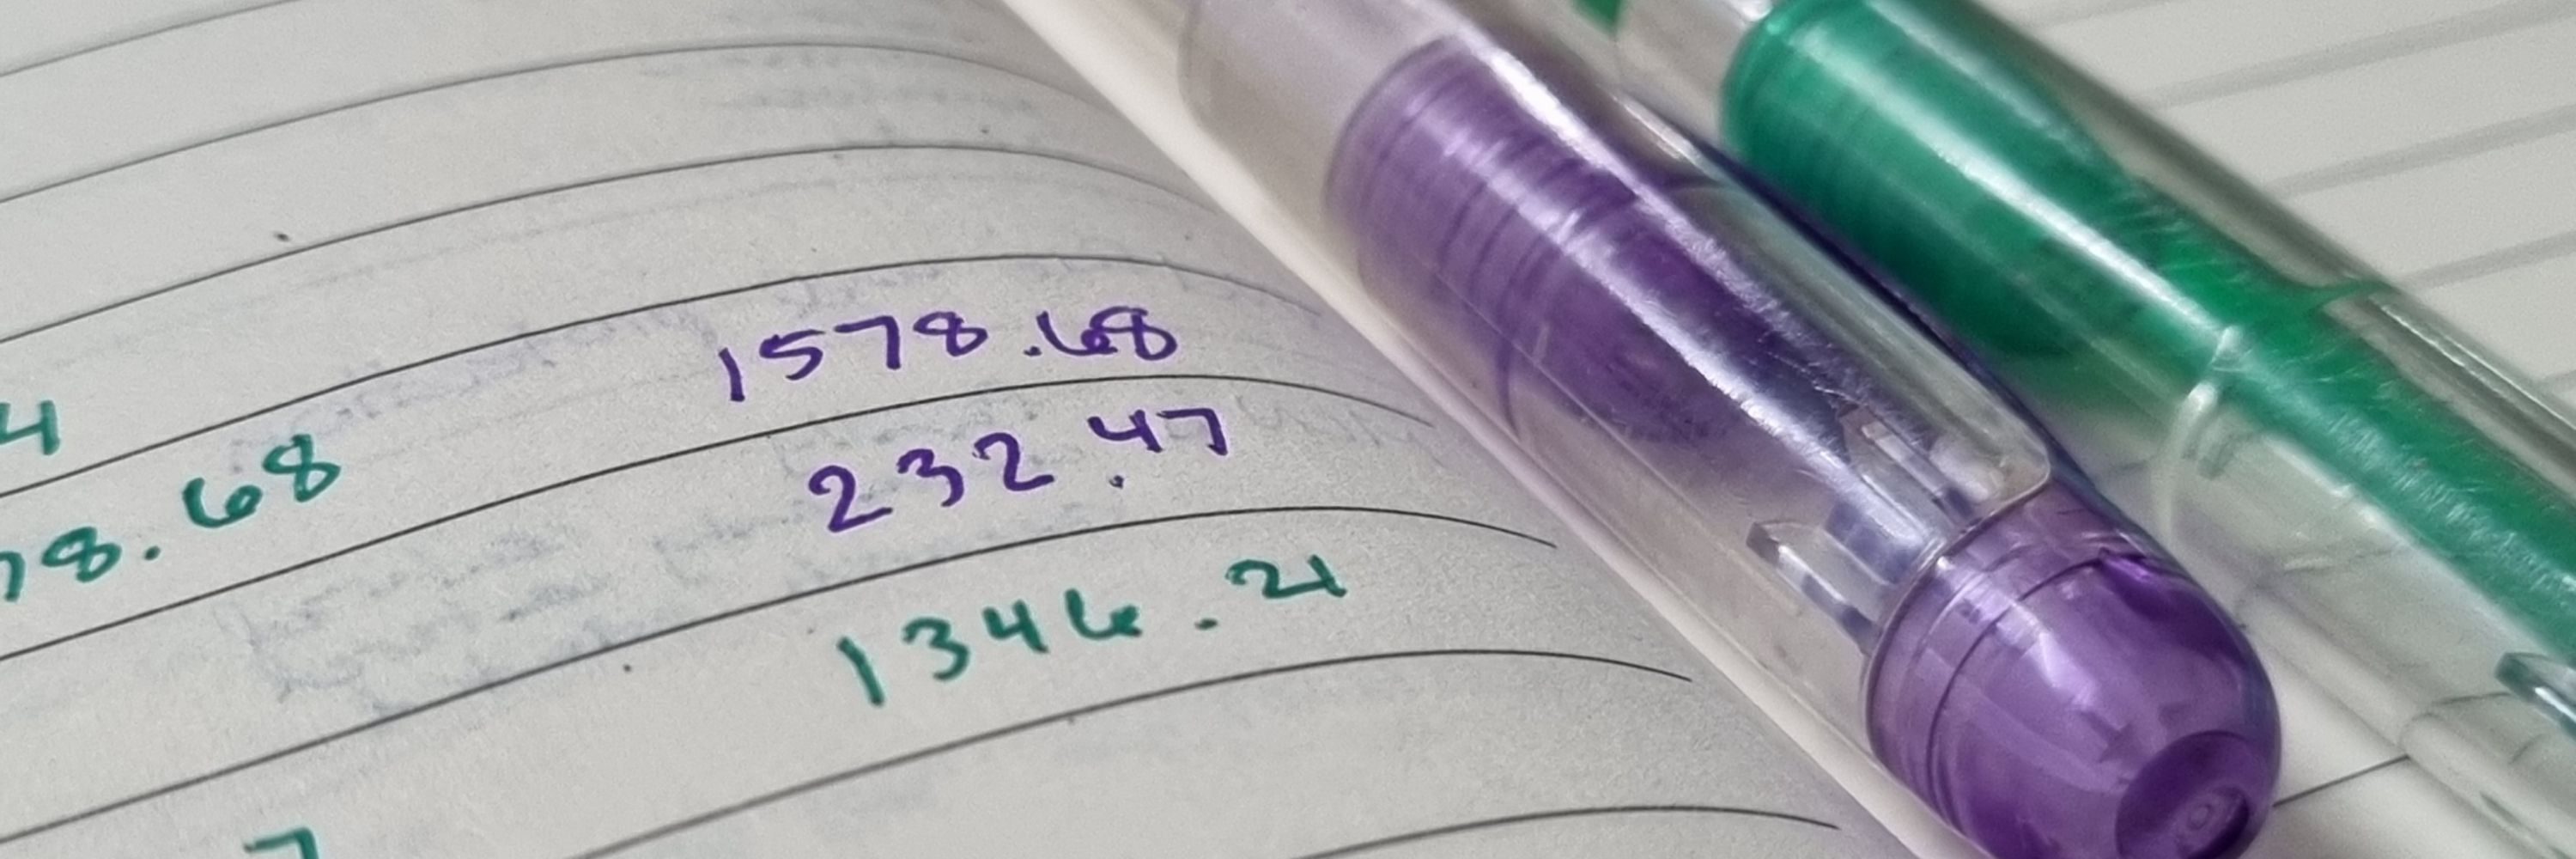 4
78.68
1578.68
232.47
1346.21
7